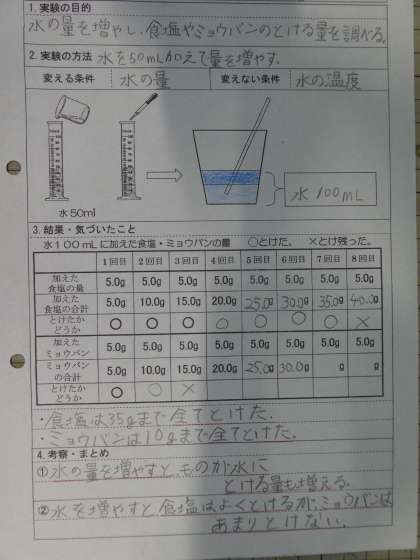 1. 実験の目的
水の量を増やし、食塩やミョウバンのとける量を調べる。
2. 実験の方法 水を50mL加えて量を増やす。
変える条件 水の量 変えない条件 水の温度
水 100mL
水 50ml
3. 結果・気づいたこと
水100mLに加えた食塩・ミョウバンの量 ○とけた。 ×とけ残った。
1回目 2回目 3回目 4回目 5回目 6回目 7回目 8回目
加えた食塩の量 5.0g 5.0g 5.0g 5.0g 5.0g 5.0g 5.0g 5.0g
加えた食塩の合計 5.0g 10.0g 15.0g 20.0g 25.0g 30.0g 35.0g 40.0g
とけたかどうか ○ ○ ○ ○ ○ ○ ○ ×
加えたミョウバン 5.0g 5.0g 5.0g 5.0g 5.0g 5.0g 5.0g 5.0g
ミョウバンの合計 5.0g 10.0g 15.0g 20.0g 25.0g 30.0g g g
とけたかどうか ○ ○ ×
・食塩は35gまで全てとけた。
・ミョウバンは10gまで全てとけた。
4. 考察・まとめ
①水の量を増やすと、ものが水に
とける量も増える。
②水を増やすと食塩はよくとけるが、ミョウバンは
あまりとけない。